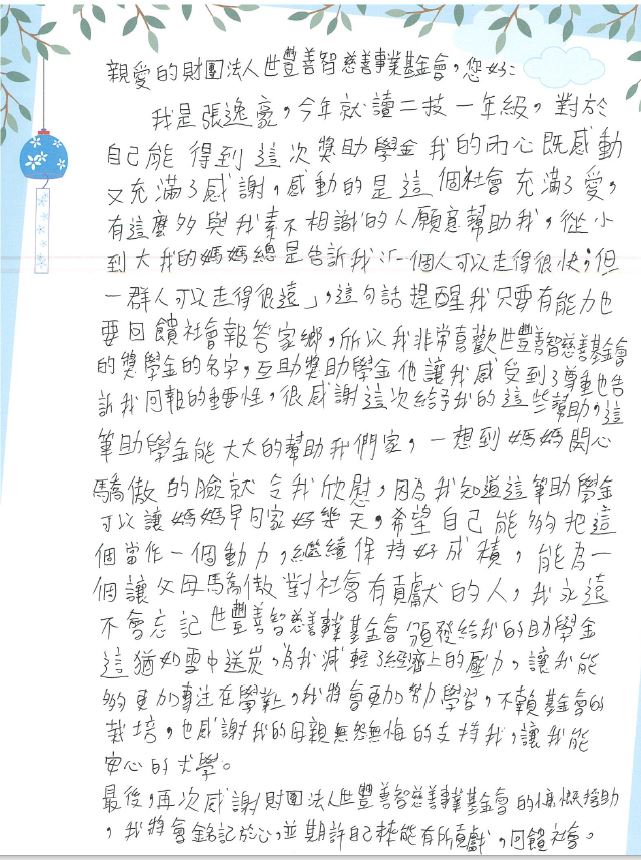 親愛的財團法人世豐善智慈善事業基金會，您好：
我是張逸豪，今年就讀二技一年級，對於
自己能得到這次獎助學金我的內心既感動
又充滿了感謝，感動的是這個社會充滿了愛，
有這麼多與我素不相識的人願意幫助我，從小
到大我的媽媽總是告訴我「一個人可以走得很快；但
一群人可以走得很遠」，這句話提醒我只要有能力也
要回饋社會報答家鄉，所以我非常喜歡世豐善智慈善基金會
的獎學金的名字，互助獎助學金他讓我感受到了尊重也告
訴我回報的重要性，很感謝這次給予我的這些幫助，這
筆助學金能大大的幫助我們家，一想到媽媽開心
驕傲的臉就令我欣慰，因為我知道這筆助學金
可以讓媽媽早回家好幾天，希望自己能夠把這
個當作一個動力，繼續保持好成積，能為一
個讓父母驕傲對社會有貢獻的人，我永遠
不會忘記世豐善智慈善事業基金會頒發給我的助學金
這猶如雪中送炭，為我減輕了經濟上的壓力，讓我能
夠更加專注在學業上，我將會更加努力學習，不賴基金會的
栽培，也感謝我的母親無怨無悔的支持我，讓我能
安心的求學。
最後，再次感謝財團法人世豐善智慈善事業基金會的慷慨捐助
，我將會銘記於心，並期許自己未來能有所貢獻，回饋社會。